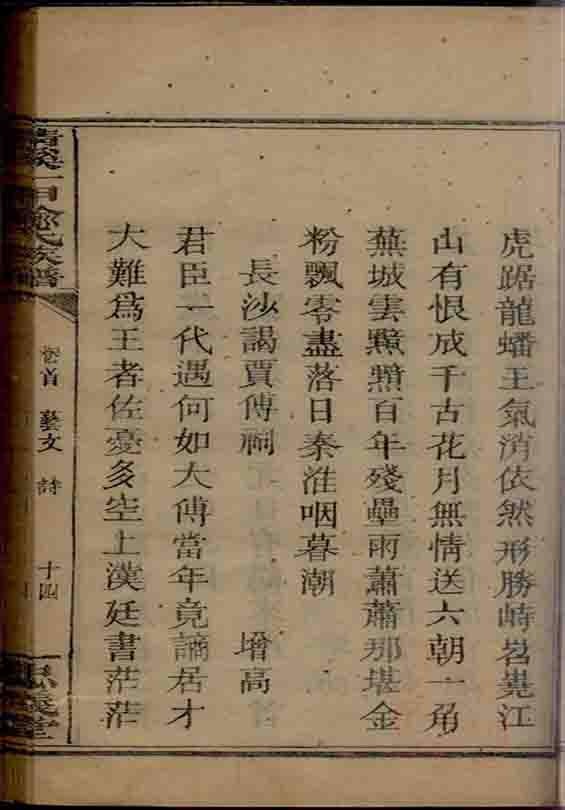 虎踞龍蟠王氣消依然形勝峙岧嶤江
山有恨成千古花月無情送六朝一角
蕪城雲黯黯百年殘壘雨蕭蕭那堪金
粉飄零盡落日秦淮咽暮潮
長沙謁賈傅祠 增高
君臣一代遇何如太傅當年竟謫居才
大難為王者佐憂多空上漢廷書茫茫
卷首 藝文 詩 十四